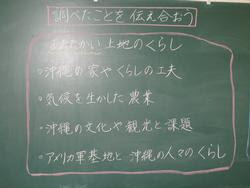 調べたことを伝え合おう
あたたかい土地のくらし
・沖縄の家やくらしの工夫
・気候を生かした農業
・沖縄の文化や観光と課題
・アメリカ軍基地と沖縄の人々のくらし